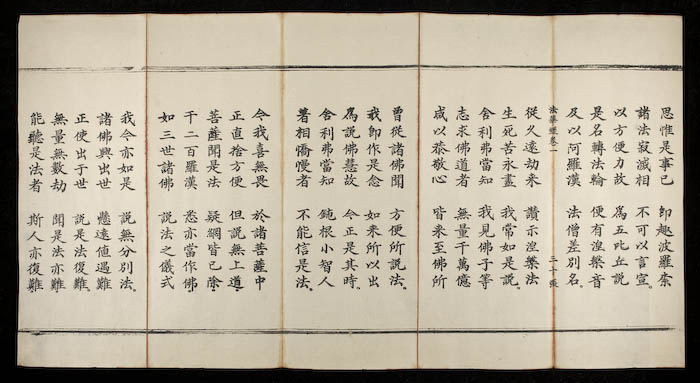 思惟是事已　即趣波羅柰
諸法寂滅相　不可以言宣。
以方便力故　爲五比丘說
是名轉法輪　便有涅槃音
及以阿羅漢　法僧差別名。
法華經卷一　三十張
從久遠劫来　讚示涅槃法
生死苦永盡　我常如是說。
舍利弗當知　我見佛子等
志求佛道者　無量千萬億
咸以恭敬心　皆来至佛所
曾從諸佛聞　方便所說法。
我即作是念　如来所以出
爲說佛慧故　今正是其時
舍利弗當知　鈍根小智人
著相憍慢者　不能信是法。
今我喜無畏　於諸菩薩中
正直捨方便　但說無上道。
菩薩聞是法　疑網皆已除。
千二百羅漢　悉亦當作佛
如三世諸佛　說法之儀式
我今亦如是　說無分別法。
諸佛興出世　懸遠值遇難
正使出于世　說是法復難。
無量無數劫　聞是法亦難
能聽是法者　斯人亦復難。